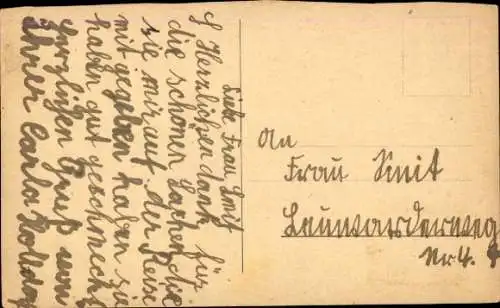 Liebe Frau Smit
Herzlichen dank für
die schönen Sachen die
sie mir auf der Reise
mit gegeben haben sie
haben gut geschmeckt
Herzlichen Gruß von
Ihrer Carla
An
Frau Smit
Leuwarderweg
Nr 4.